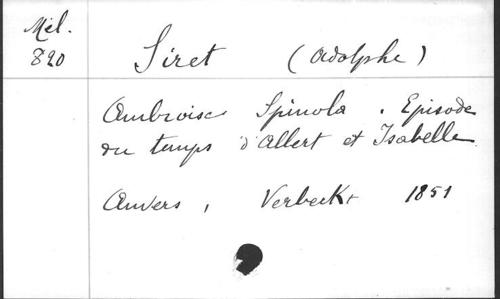 Mél.
820
Siret (Adolphe)
Ambroise Spinola. Episode
du temps d'Albert et Isabelle
Anvers, Verbeckt 1851